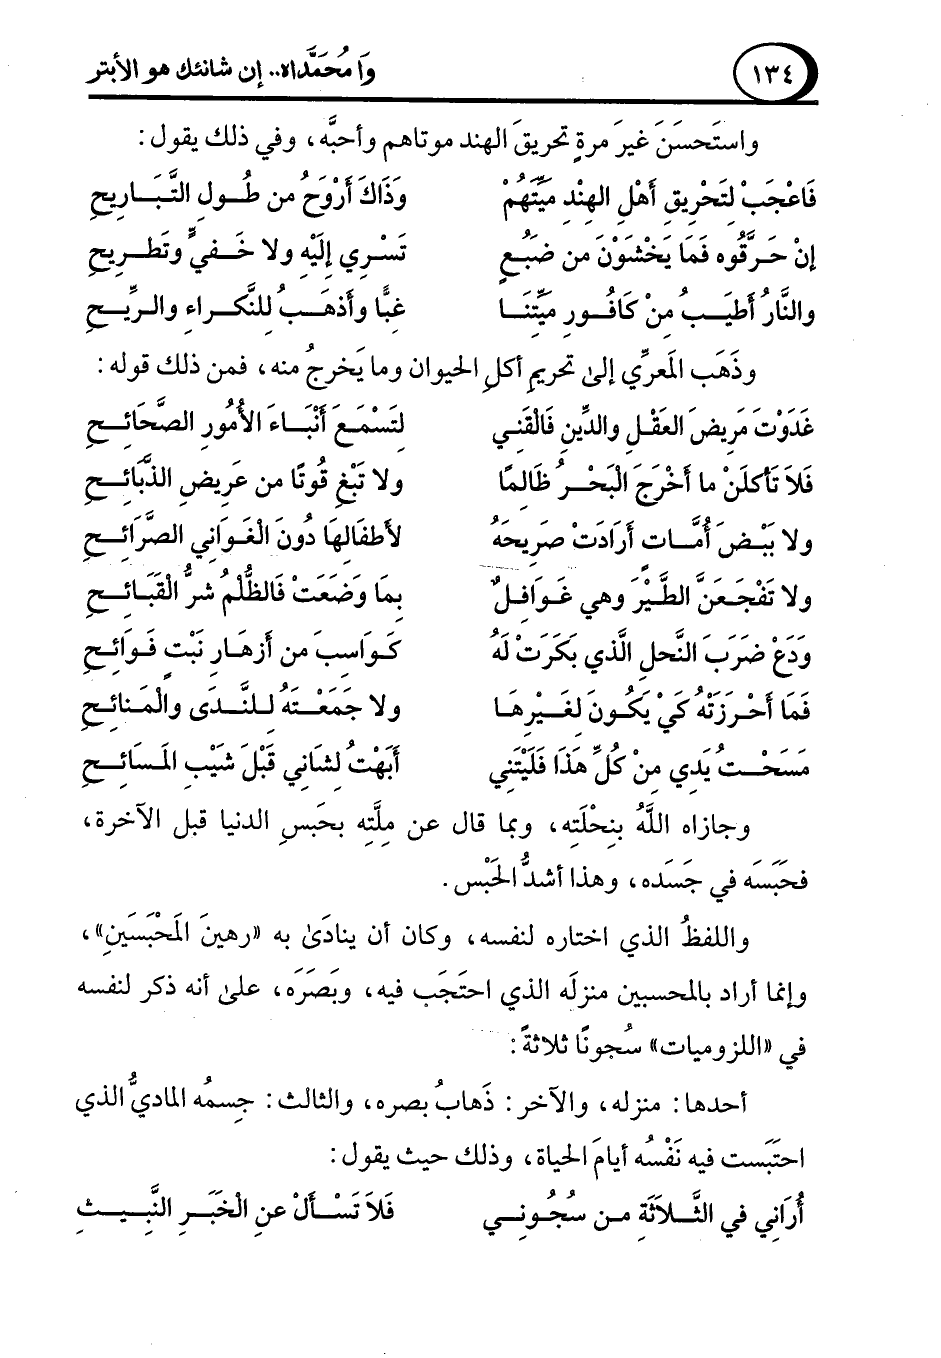 ١٣٤ وَا مُحَمَّدَاه.. إن شانئك هو الأبتر
واستَحسَنَ غيرَ مرةٍ تحريقَ الهند موتاهم وأحبَّه، وفي ذلك يقول:
فَاعْجَبْ لتَحْرِيقِ أَهْلِ الهِنْدِ مَيِّتَهُمْ وَذَاكَ أَرْوَحُ من طُـولِ التَّبَـارِيحِ
إنْ حَـرَّقُوه فَمَا يَخْشَوْنَ من ضَبُـعٍ تَسْـرِي إِلَيْهِ ولا خَـفـيٍّ وتَطـريـحِ
والنَّارُ أَطيَـبُ مِنْ كَافُـورِ مَيِّتنَـا غِبًّا وأَذهَـبُ للنَّكـراءِ والـرِّيـحِ
وذَهَب المَعرِّي إلى تحريمِ أكلِ الحيوان وما يَخرجُ منه، فمن ذلك قوله:
غَدَوْتَ مَرِيضَ العَقْـلِ والدِّينِ فَالْقَنِي لتَسْمَـعَ أَنْبَـاءَ الأُمُورِ الصَّحَائـحِ
فَلاَ تَأكلَنْ ما أَخْرَجَ الْبَحْـرُ ظَالمًا ولا تَبْغِ قُوتًا من غَرِيضِ الذَّبَائـحِ
ولا بَيْضَ أُمَّـاتٍ أَرَادَتْ صَرِيحَهُ لأَطفَالِهَا دُونَ الْغَوَاني الصَّرَائِـحِ
ولا تَفْجَـعَنَّ الطَّيْرَ وهي غَـوَافـلٌ بِمَا وَضَعَتْ فَالظُّلْمُ شرُّ الْقَبَائـحِ
وَدَعْ ضَرَبَ النَّحلِ الَّذي بَكَرَتْ لَهُ كَـوَاسِبَ من أزهَـارِ نَبْتٍ فَـوَائِـحِ
فَمَا أَحْـرَزَتْهُ كَيْ يَكُـونَ لغَيْـرِهَـا ولا جَمَعَتْهُ لـلنَّـدَى والْمَـنائـحِ
مَسَحْـتُ يَدِي مِنْ كُلِّ هَذَا فَلَيْتَنِي أَبَهْتُ لشَانِي قَبْلَ شَيْبِ المَسَائـحِ
وجازاه اللَّهُ بنِحْلَتِه، وبما قال عن مِلَّتِه بحَبسِ الدنيا قبل الآخرة،
فحَبَسَه في جَسَدِه، وهذا أشدُّ الحَبْس.
واللفظُ الذي اختاره لنفسه، وكان أن ينادَى به «رهينَ المَحْبَسَينِ»،
وإنما أراد بالمحسبين منزلَه الذي احتَجَب فيه، وبَصَرَه، على أنه ذكر لنفسه
في «اللزوميات» سُجونًا ثلاثةً:
أحدها: منزله، والآخر: ذَهابُ بصرِه، والثالث: جِسمُه الماديُّ الذي
احتَبَست فيه نَفْسُه أيامَ الحياة، وذلك حيث يقول:
أُرَانِي في الثَّـلاَثَةِ مـن سُجُـونِـي فَلاَ تَسْـأَلْ عنِ الْخَبَـرِ النَّبِيـثِ